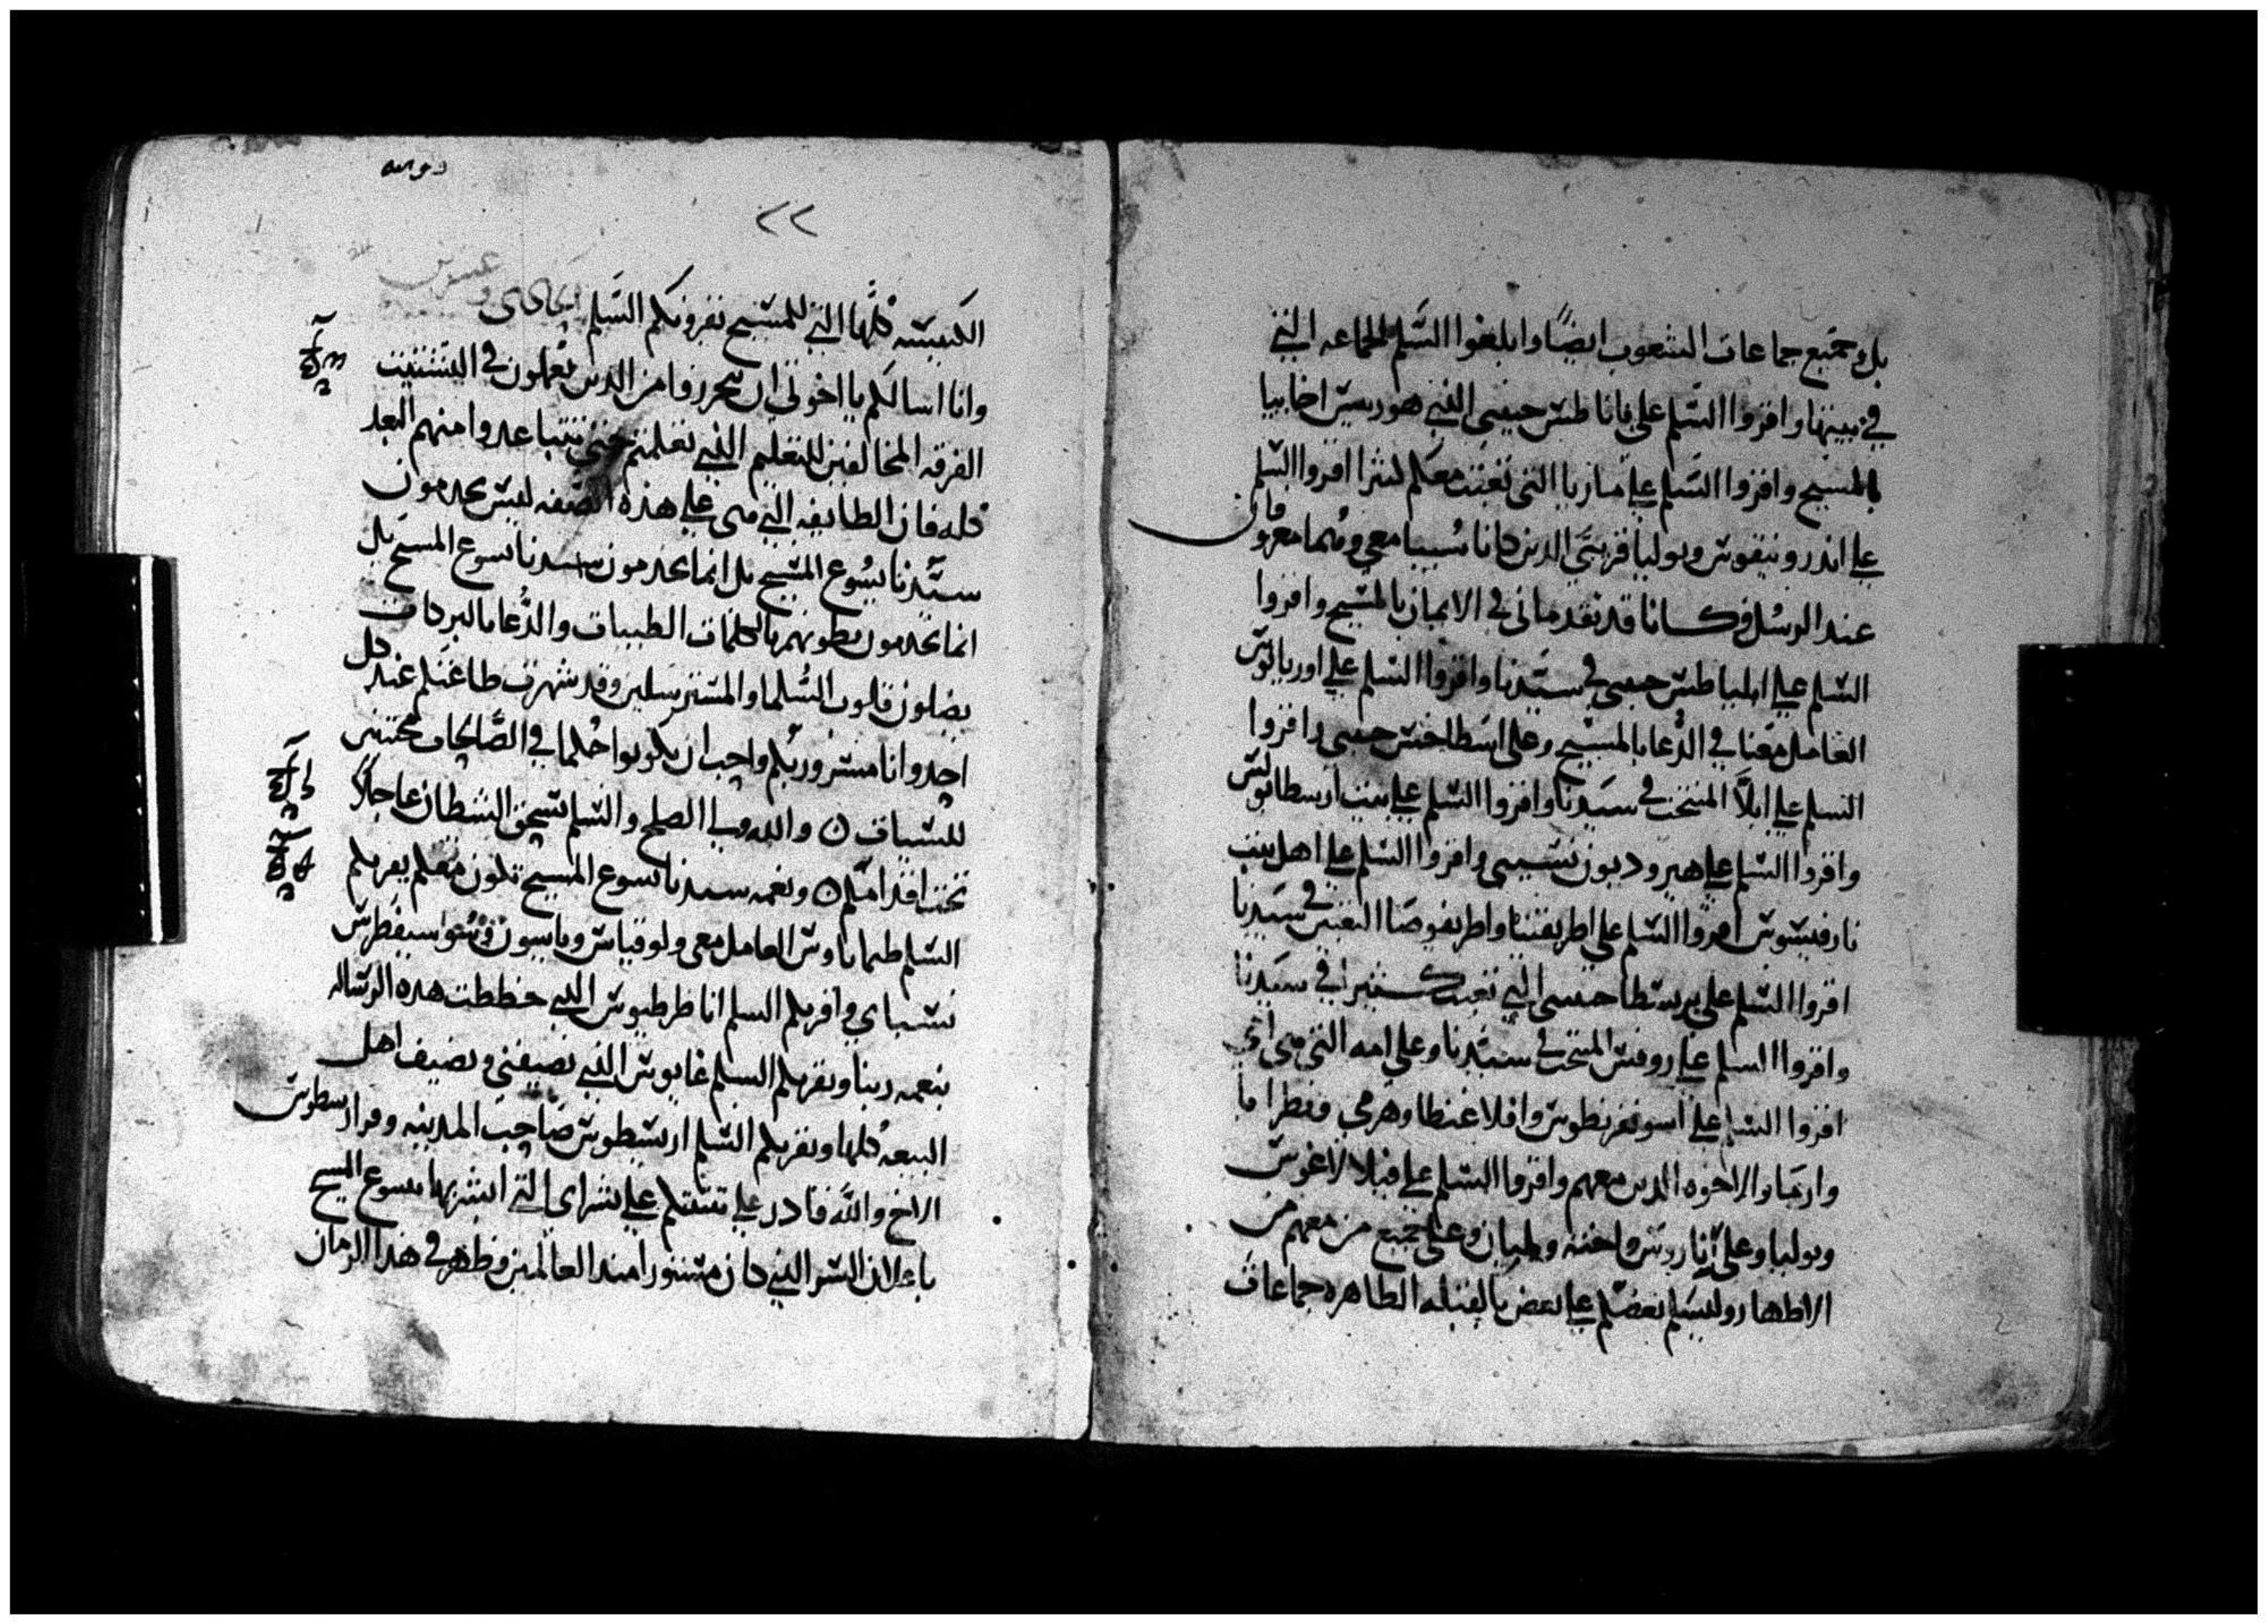 بل وجميع جماعات الشعوب ايضًا وابلغوا السَّلم الجماعه التي
في بيتها واقروا السَّلم على فاناطس حبيبي الذي هو ريس اخاييا
بالمسيح واقروا السَّلم على ماريا التي تعبت معكم كثيرا اقروا السَّلم
على اندرونيقوس ويوليا قرابتي الدين كانا سُبيا معي وهُما معروفان
عند الرسُل وكانا قد تقدماني في الايمان بالمسيح واقروا
السَّلم على امليباطس حبيبي في سيّدنا واقروا السَّلم على اوربانوس
العامل معنا في الدُّعا بالمسيح وعلى اسطاخس حبيبي واقروا
السلم على ابلَّا المنتخب في سيدنا واقروا السَّلم على بيت ارسطابولس
واقروا السَّلم على هيروديون نسيبي واقروا السَّلم على اهل بيت
نارقيسوس اقروا السَّلم على اطريفنا واطريفوصا التعبتين في سيّدنا
اقروا السَّلم على برسطا حبيبتي التي تعبت كثيرا في سيّدنا
واقروا السلم على روفس المنتخب في سيّدنا وعلى امه التي هي امي
اقروا السلم على اسونقريطوس وافلاغنطا وهرمي وفطرابا
وارما والاخوه الدين معهم واقروا السَّلم على فيلالاغوس
ويوليا وعلى اناروس واخته وملبان وعلى جميع من معهم من
الاطهار وليسَلم بعضكم على بعض بالقبله الطاهره جماعات
٢٢
الكنيسه كُلّها التي للمسيح تقرونكم السَّلم الحادي وعشرين
وانا اسالكم يا اخوتي ان تحرزوا من الدين يعملون في التشتيت
الفرقه المخالفين للتعليم الذي تعلمتم حتي تتباعدوا منهم البعد
كله فان الطايفه التي هي على هذه الصّفه ليس يخدمون
سيّدنا يسُوع المسيح بل انما يخدمون سيدنا يسوع المسيح بل
انما يخدمون بطونهم بالكلمات الطيبات والدُّعا بالبركات
يضلون قلوب السُّلما والمسترسلين وقد شهرت طاعتكم عند كل
احد وانا مسرور بكم واحب ان يكونوا حُكما في الصَّالحات محتنبي
للسيات ن والله وبي الصلح والسَّلم يسحق الشيطان عاجلًا
تحت اقدامكم ن ونعمه سيدنا يسوع المسيح تكون معكم يقريكم
السَّلم طيماتاوس العامل معي ولوقياس وياسون وسوسيفطرس
نسباي واقريكم السلم انا طرطيوس الذي خططت هذه الرساله
بنعمه ربنا ويقريكم السلم غايوس الذي يضيفني ويضيف اهل
البيعه كُلها ويقريكم السَّلم ارسطوس صَاحب المدينه وقوارسطوس
الاخ والله قادر على تثبتكم على بشراي التي ابشر بها يسوع المسيح
باعلان السّر الذي كان مستورا منذ العالمين وظهر في هذا الزمان